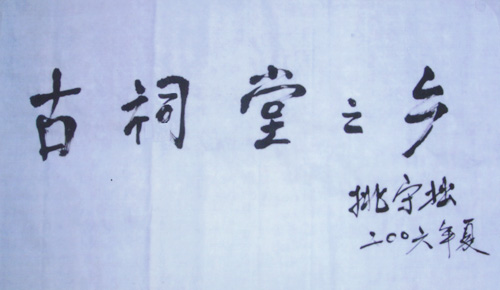 古祠堂之乡
姚守拙
二〇〇六年夏